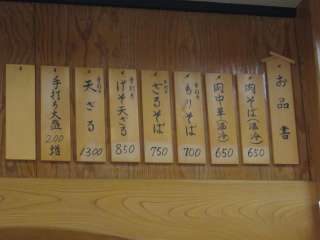 お品書
肉そば(温・冷) 650
肉中華(温・冷) 650
もりそば 700
ざるそば 750
げそ天ざる 850
天ざる 1300
手打ち大盛 200増